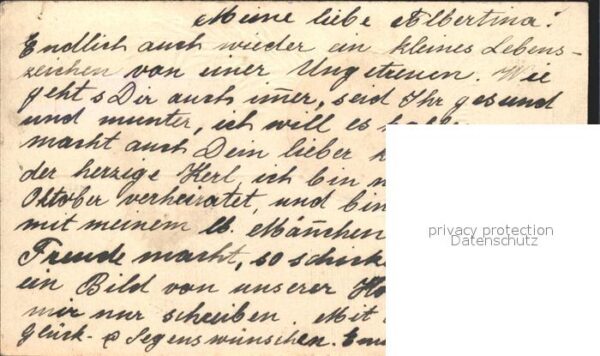 Meine liebe Albertina!
Endlich auch wieder ein kleines Lebens-
zeichen von einer Ungetreuen. Wie
geht s Dir auch im̅er, seid Ihr gesund
und munter, ich will es
macht auch Dein lieber
der herzige Kerl, ich bin
Oktober verheiratet, und bin
mit meinem lb. Män̅chen
Freude macht, so schick
ein Bild von unserer
mir nur schreiben. Mit
glück- & Segenswünschen.
privacy protection
Datenschutz